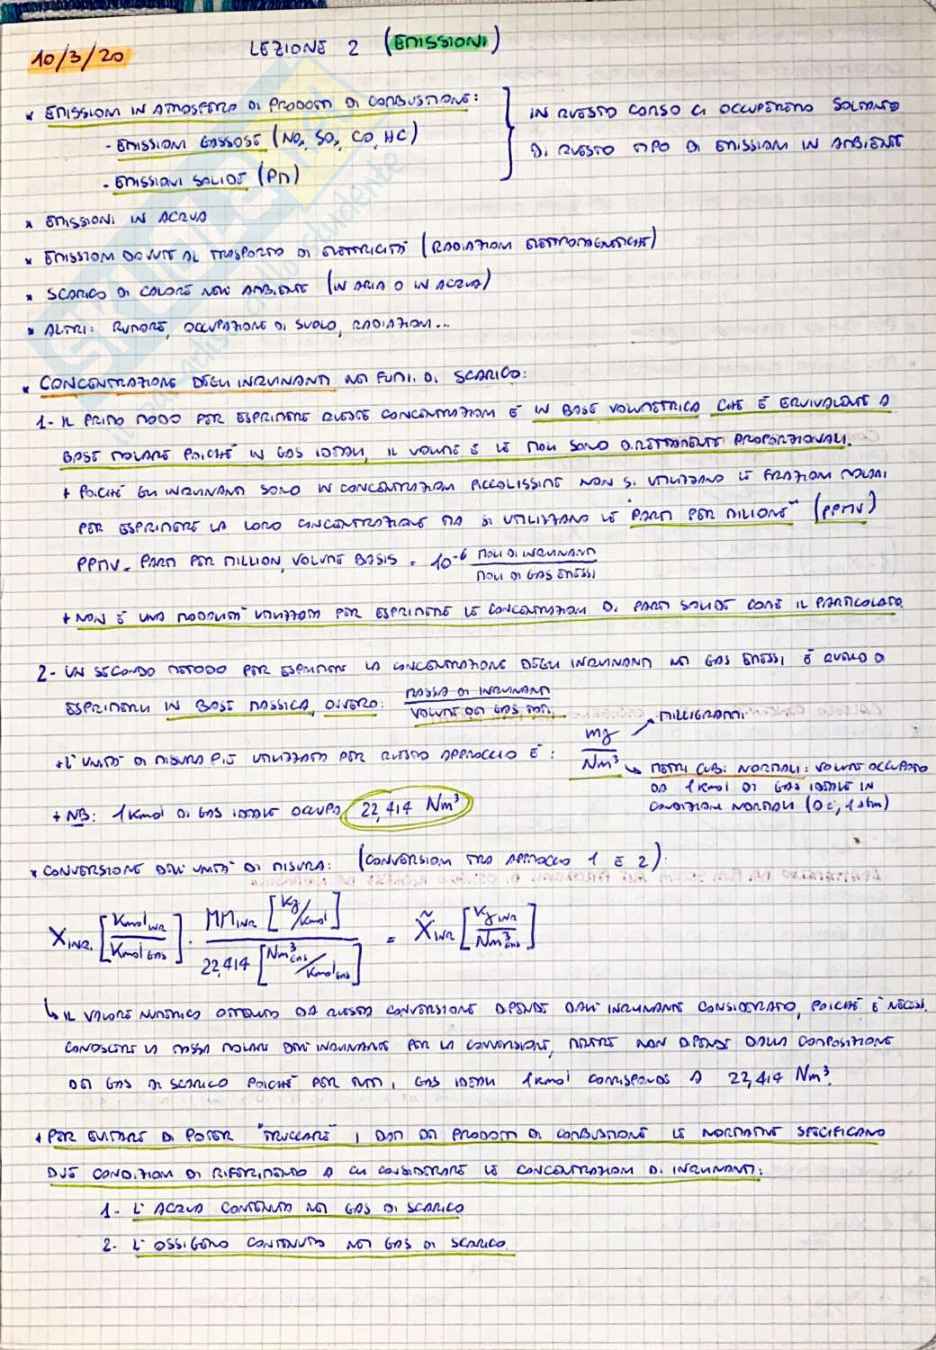 10/3/20
LEZIONE 2 (EMISSIONI)
* EMISSIONI IN ATMOSFERA DI PRODOTTI DI COMBUSTIONE:
- EMISSIONI GASSOSE (NOx, SOx, CO, HC)
- EMISSIONI SOLIDE (PM)
IN QUESTO CORSO CI OCCUPEREMO SOLTANTO
DI QUESTO TIPO DI EMISSIONI IN AMBIENTE
* EMISSIONI IN ACQUA
* EMISSIONI DOVUTE AL TRASPORTO DI ELETTRICITÀ (RADIAZIONI ELETTROMAGNETICHE)
* SCARICO DI CALORE NELL'AMBIENTE (IN ARIA O IN ACQUA)
* ALTRI: RUMORE, OCCUPAZIONE DI SUOLO, RADIAZIONI...
* CONCENTRAZIONE DEGLI INQUINANTI NEI FUMI DI SCARICO:
1- IL PRIMO MODO PER ESPRIMERE QUESTE CONCENTRAZIONI È IN BASE VOLUMETRICA CHE È EQUIVALENTE A
BASE MOLARE POICHÉ IN GAS IDEALI, IL VOLUME E LE MOLI SONO DIRETTAMENTE PROPORZIONALI.
+ POICHÉ GLI INQUINANTI SONO IN CONCENTRAZIONI PICCOLISSIME NON SI UTILIZZANO LE FRAZIONI MOLARI
PER ESPRIMERE LA LORO CONCENTRAZIONE MA SI UTILIZZANO LE "PARTI PER MILIONE" (PPMV)
PPMV = PARTI PER MILLION, VOLUME BASIS = 10⁻⁶ MOLI DI INQUINANTE / MOLI DI GAS EMESSI
+ NON È UNA MODALITÀ UTILIZZATA PER ESPRIMERE LE CONCENTRAZIONI DI PARTI SOLIDE COME IL PARTICOLATO.
2- UN SECONDO METODO PER ESPRIMERE LA CONCENTRAZIONE DEGLI INQUINANTI NEI GAS EMESSI È QUELLO DI
ESPRIMERLI IN BASE MASSICA, OVVERO: MASSA DI INQUINANTI / VOLUME DEI GAS TOT.
+ L'UNITÀ DI MISURA PIÙ UTILIZZATA PER QUESTO APPROCCIO È: mg / Nm³
MILLIGRAMMI
METRI CUBI NORMALI: VOLUME OCCUPATO
DA 1 Kmol DI GAS IDEALE IN
CONDIZIONI NORMALI (0°C, 1 atm)
+ NB: 1 Kmol DI GAS IDEALE OCCUPA 22,414 Nm³
* CONVERSIONE DELL'UNITÀ DI MISURA: (CONVERSIONI TRA APPROCCIO 1 E 2):
X INQ. [Kmol INQ / Kmol GAS] · MM INQ [Kg/Kmol] / 22,414 [Nm³ GAS / Kmol GAS] = X̃ INQ [Kg INQ / Nm³ GAS]
↳ IL VALORE NUMERICO OTTENUTO DA QUESTA CONVERSIONE DIPENDE DALL'INQUINANTE CONSIDERATO, POICHÉ È NECESS.
CONOSCERE LA MASSA MOLARE DELL'INQUINANTE PER LA CONVERSIONE, MENTRE NON DIPENDE DALLA COMPOSIZIONE
DEI GAS DI SCARICO POICHÉ PER TUTTI I GAS IDEALI 1 Kmol CORRISPONDE A 22,414 Nm³.
+ PER EVITARE DI POTER "TRUCCARE" I DATI DEI PRODOTTI DI COMBUSTIONE LE NORMATIVE SPECIFICANO
DUE CONDIZIONI DI RIFERIMENTO A CUI CONSIDERARE LE CONCENTRAZIONI DI INQUINANTI:
1- L'ACQUA CONTENUTA NEI GAS DI SCARICO
2- L'OSSIGENO CONTENUTO NEI GAS DI SCARICO.